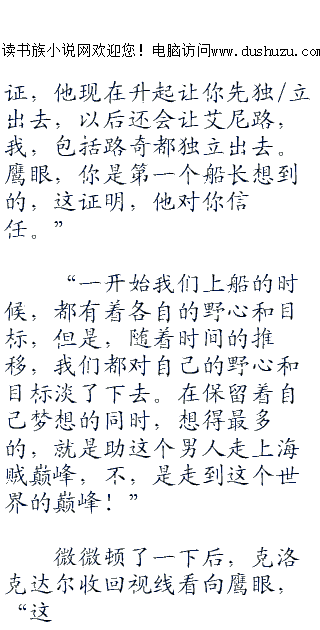 读书族小说网欢迎您！电脑访问www.dushuzu.com
证，他现在升起让你先独/立
出去，以后还会让艾尼路，
我，包括路奇都独立出去。
鹰眼，你是第一个船长想到
的，这证明，他对你信
任。”
“一开始我们上船的时
候，都有着各自的野心和目
标，但是，随着时间的推
移，我们都对自己的野心和
目标淡了下去。在保留着自
己梦想的同时，想得最多
的，就是助这个男人走上海
贼巅峰，不，是走到这个世
界的巅峰！”
微微顿了一下后，克洛
克达尔收回视线看向鹰眼，
“这